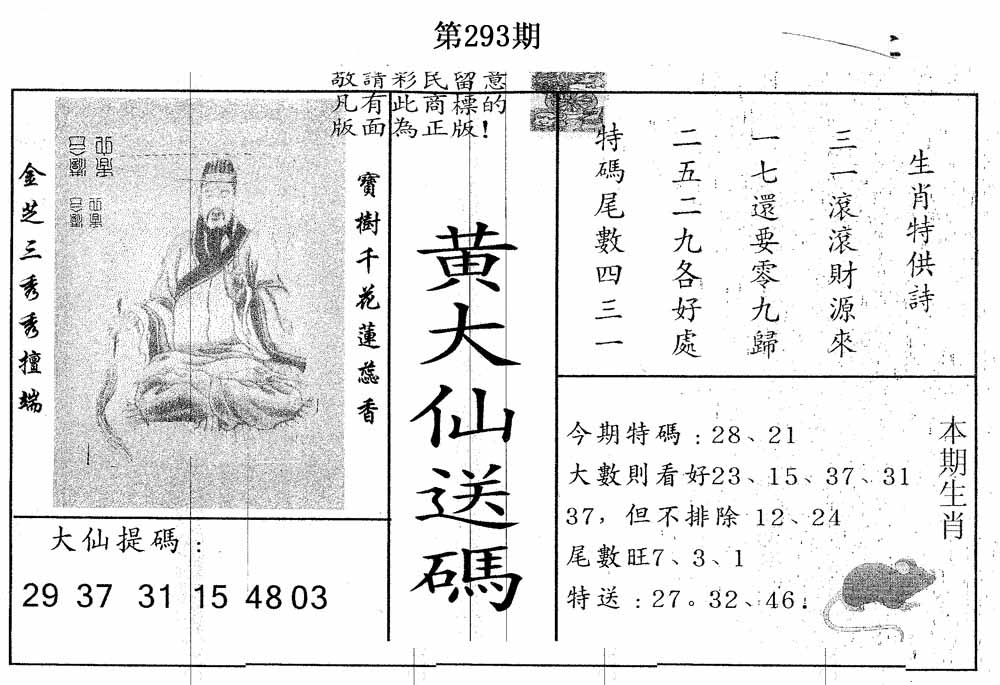 第293期
敬請彩民留意
凡有此商標的
版面為正版!
金芝三秀秀擅端
寶樹千花蓮蕊香
黃大仙送碼
生肖特供詩
三一滾滾財源來
一七還要零九歸
二五二九各好處
特碼尾數四三一
大仙提碼：
29 37 31 15 48 03
今期特碼：28、21
大數則看好23、15、37、31
37，但不排除 12、24
尾數旺7、3、1
特送：27。32、46.
本期生肖